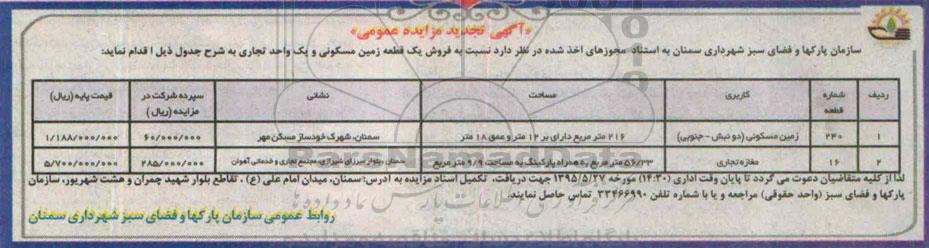 «آگهی تجدید مزایده عمومی»
سازمان پارکها و فضای سبز شهرداری سمنان به استناد مجوزهای اخذ شده در نظر دارد نسبت به فروش یک قطعه زمین مسکونی و یک واحد تجاری به شرح جدول ذیل اقدام نماید:
ردیف شماره قطعه کاربری مساحت نشانی سپرده شرکت در مزایده (ریال) قیمت پایه (ریال)
۱ ۲۴۰ زمین مسکونی (دو نبش - جنوبی) ۲۱۶ متر مربع دارای بر ۱۲ متر و عمق ۱۸ متر سمنان، شهرک خودساز مسکن مهر ۶۰/۰۰۰/۰۰۰ ۱/۱۸۸/۰۰۰/۰۰۰
۲ ۱۶ مغازه تجاری ۵۶/۲۳ متر مربع به همراه پارکینگ به مساحت ۹/۹ متر مربع سمنان، بلوار میرزای شیرازی، مجتمع تجاری و خدماتی آهوان ۲۸۵/۰۰۰/۰۰۰ ۵/۷۰۰/۰۰۰/۰۰۰
لذا از کلیه متقاضیان دعوت می گردد تا پایان وقت اداری (۱۴:۳۰) مورخه ۱۳۹۵/۵/۲۷ جهت دریافت، تکمیل اسناد مزایده به آدرس: سمنان، میدان امام علی (ع)، تقاطع بلوار شهید چمران و هشت شهریور، سازمان
پارکها و فضای سبز (واحد حقوقی) مراجعه و یا با شماره تلفن ۳۳۴۶۶۹۹۰ تماس حاصل نمایند.
روابط عمومی سازمان پارکها و فضای سبز شهرداری سمنان